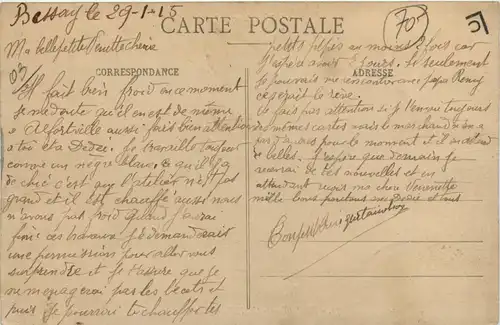 Bessay le 29-1-15
CARTE POSTALE
70
Ma belle petite Ninette chérie
CORRESPONDANCE
03
Il fait bien froid en ce moment
je me doute qu'il en est de même
a Alfortville aussi fais bien attention
a toi et a Dédée. Je travaille toujours
comme un nègre blanc, ce qu'il y a
de chic c'est que l'atelier n'est pas
grand et il est chauffé aussi nous
n'avons pas froid quand j'aurai
fini ces travaux je demanderais
une permission pour aller vous
surprendre et je t'assure que je
me menagerai pas les bécots et
puis je pourrai te chauffer tes
petits au moins 2 fois car
j'aurai 2 Jours. Si seulement
ADRESSE
je pouvais me rencontrer avec papa Remy
ce serait le rêve.
Ne fais pas attention si je t'envoi toujours
de mêmes cartes mais le marchand n'en a
pas d'autres pour le moment et il en attend
de belles. J'espère que demain je
recevrai de tes nouvelles et en
attendant reçois ma chère Ninette
mille bons